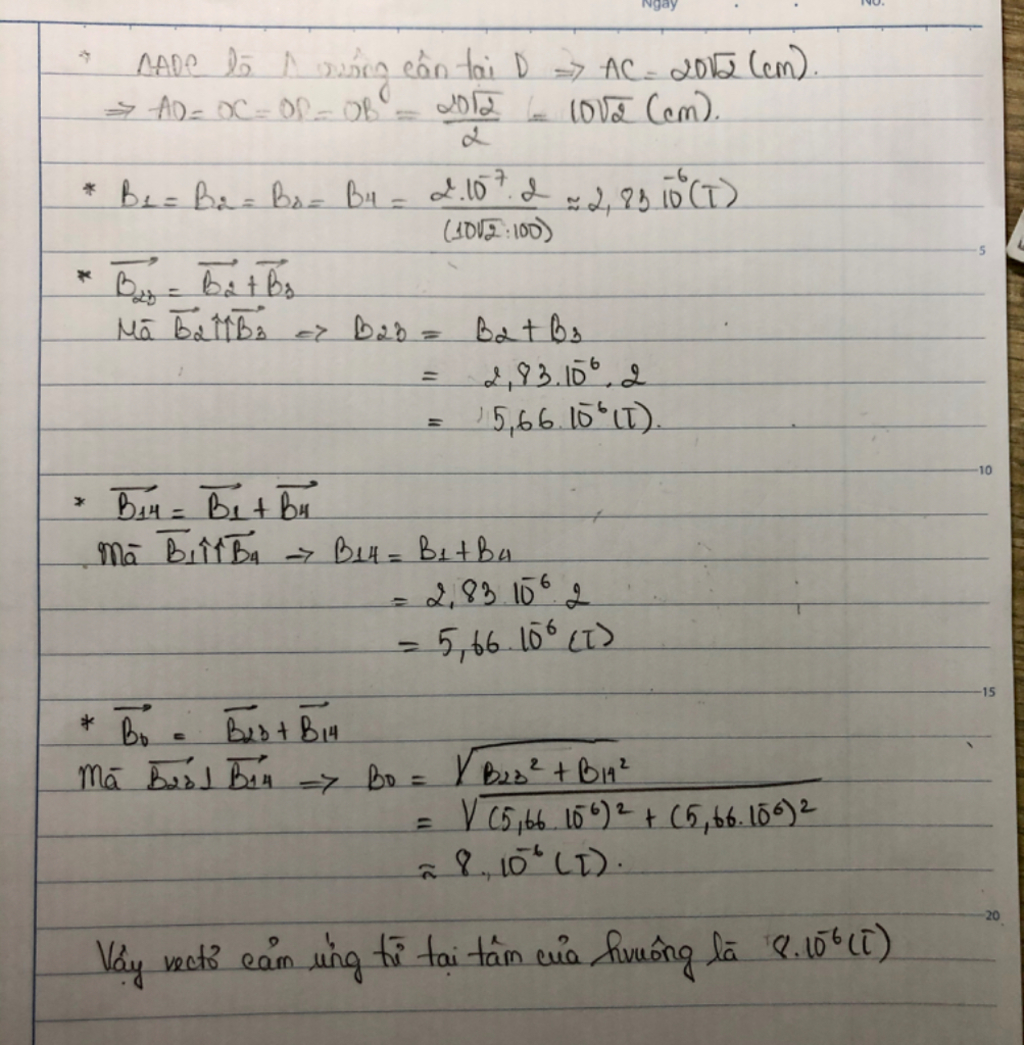 Ngày
No.
* ΔADC là Δ vuông cân tại D => AC = 20√2 (cm).
=> AO = OC = OD = OB = 20√2/2 = 10√2 (cm).
* B1 = B2 = B3 = B4 = 2.10^-7.2/(10√2:100) ≈ 2,83 10^-6 (T)
5
* B23→ = B2→ + B3→
Mà B2→ ↑↑ B3→ => B23 = B2 + B3
= 2,83.10^-6.2
= 5,66.10^-6 (T).
10
* B14→ = B1→ + B4→
Mà B1→ ↑↑ B4→ => B14 = B1 + B4
= 2,83.10^-6 2
= 5,66.10^-6 (T)
15
* B0→ = B23→ + B14→
Mà B23→ ⊥ B14→ => B0 = √(B23² + B14²)
= √((5,66.10^-6)² + (5,66.10^-6)²)
≈ 8.10^-6 (T).
20
Vậy vectơ cảm ứng từ tại tâm của hvuông là 8.10^-6 (T)